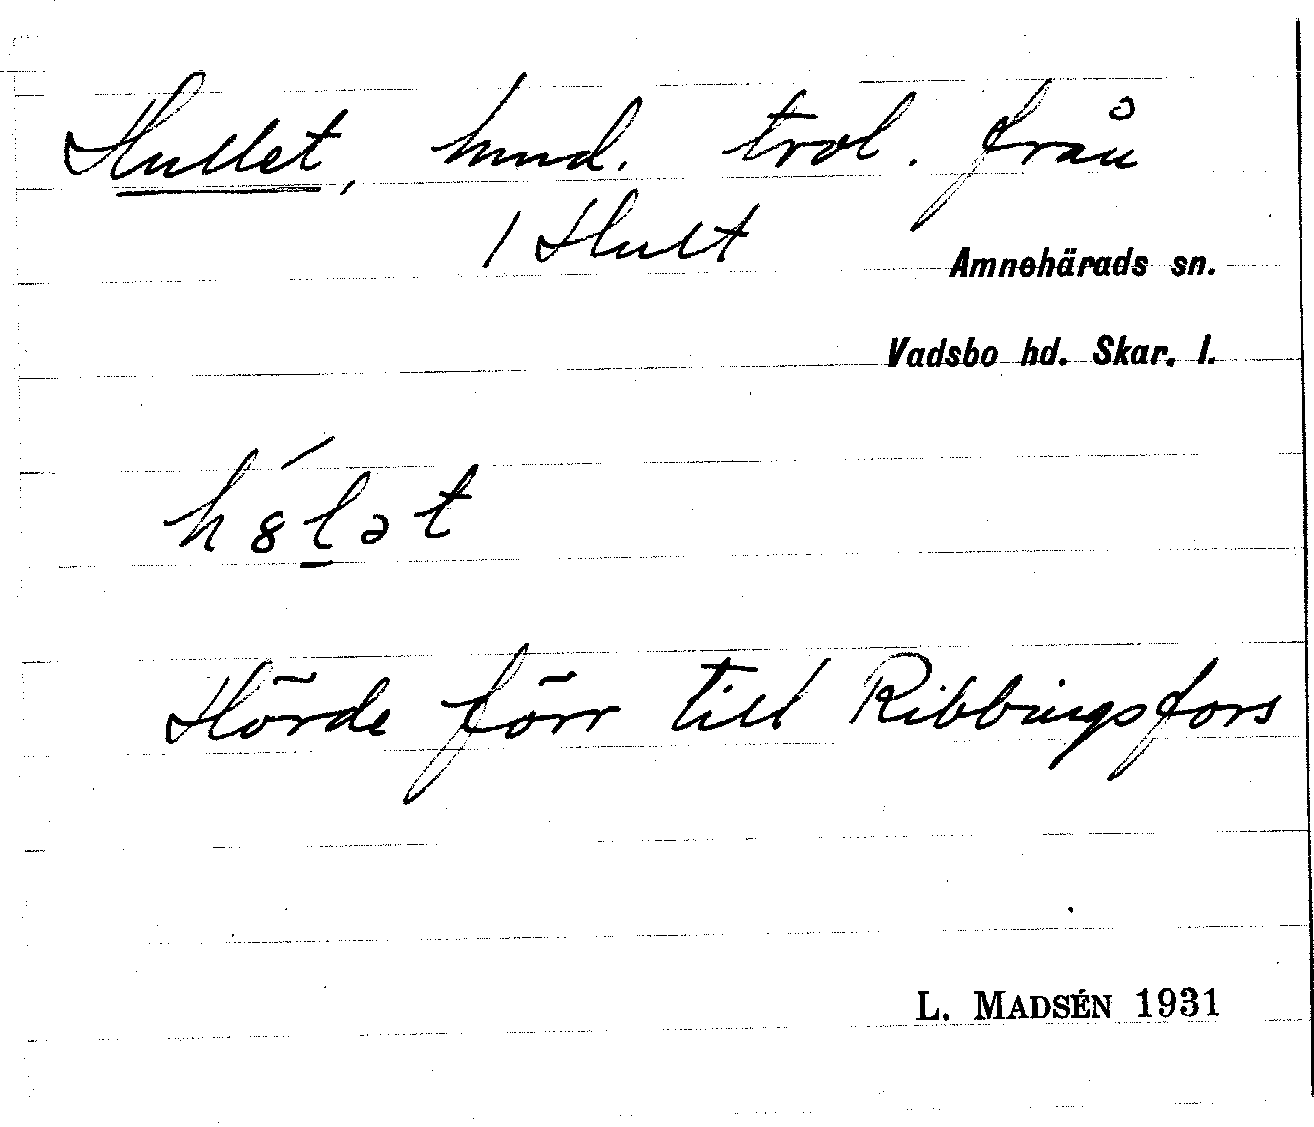 Hullet, hmd. trol. från
1 Hult
Amnehärads sn.
Vadsbo hd. Skar. l.
h8́lət
Hörde förr till Ribbingsfors
L. MADSÉN 1931